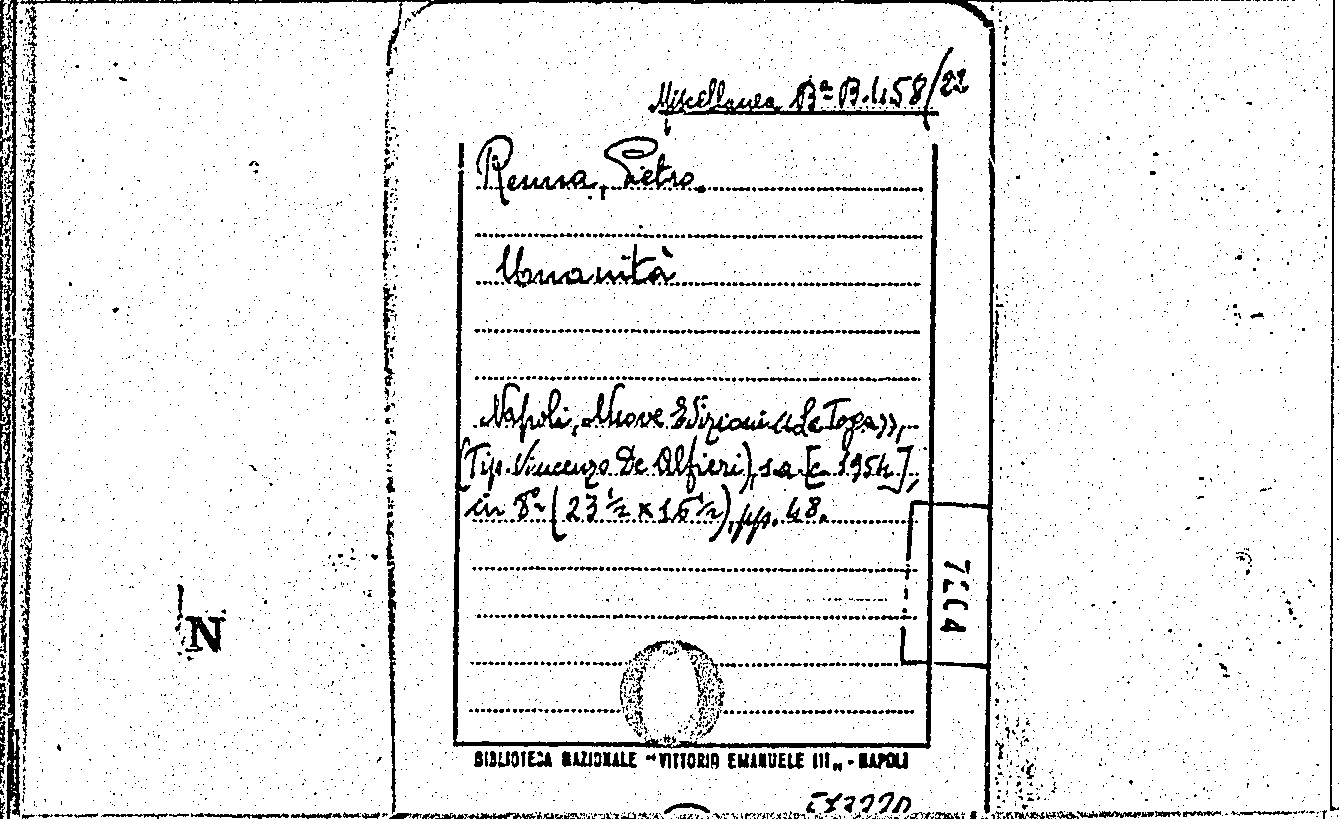 Miscellanea Bª B.458/22
Renna, Pietro.
Umanità
Napoli, Nuove Edizioni «La Toga»,
(Tip. Vincenzo De Alfieri), s.a. [c 1954],
in 8º (23½ x 16½), pp. 48.
N
BIBLIOTECA NAZIONALE "VITTORIO EMANUELE III„ - NAPOLI